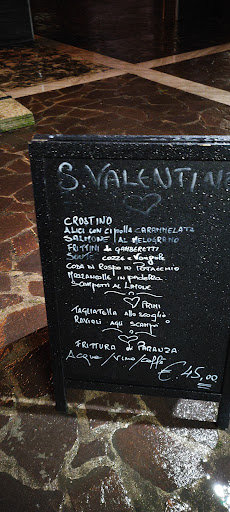 S. VALENTIN
CROSTINO
ALICI CON CIPOLLA CARAMMELATA
SALMONE AL MELOGRANO
FRITTINI di GAMBERETTI
SOUTÈ COZZE e VONGOLE
CODA di ROSPO IN POTACCHIO
MAZZANCOLLE IN padella
SCAMPETTI AL LIMONE
PRIMI
TAGLIATELLA allo scoglio
RAVIOLI agli scampi
FRITTURA di PARANZA
ACQUA / VINO / CAFFÈ
€. 45,00